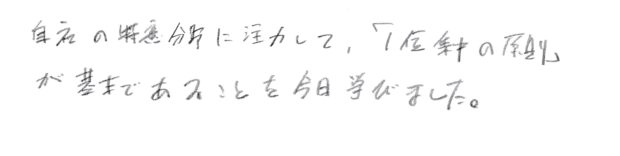 自社の得意分野に注力して、「1位集中の原則」
が基本であることを今日学びました。